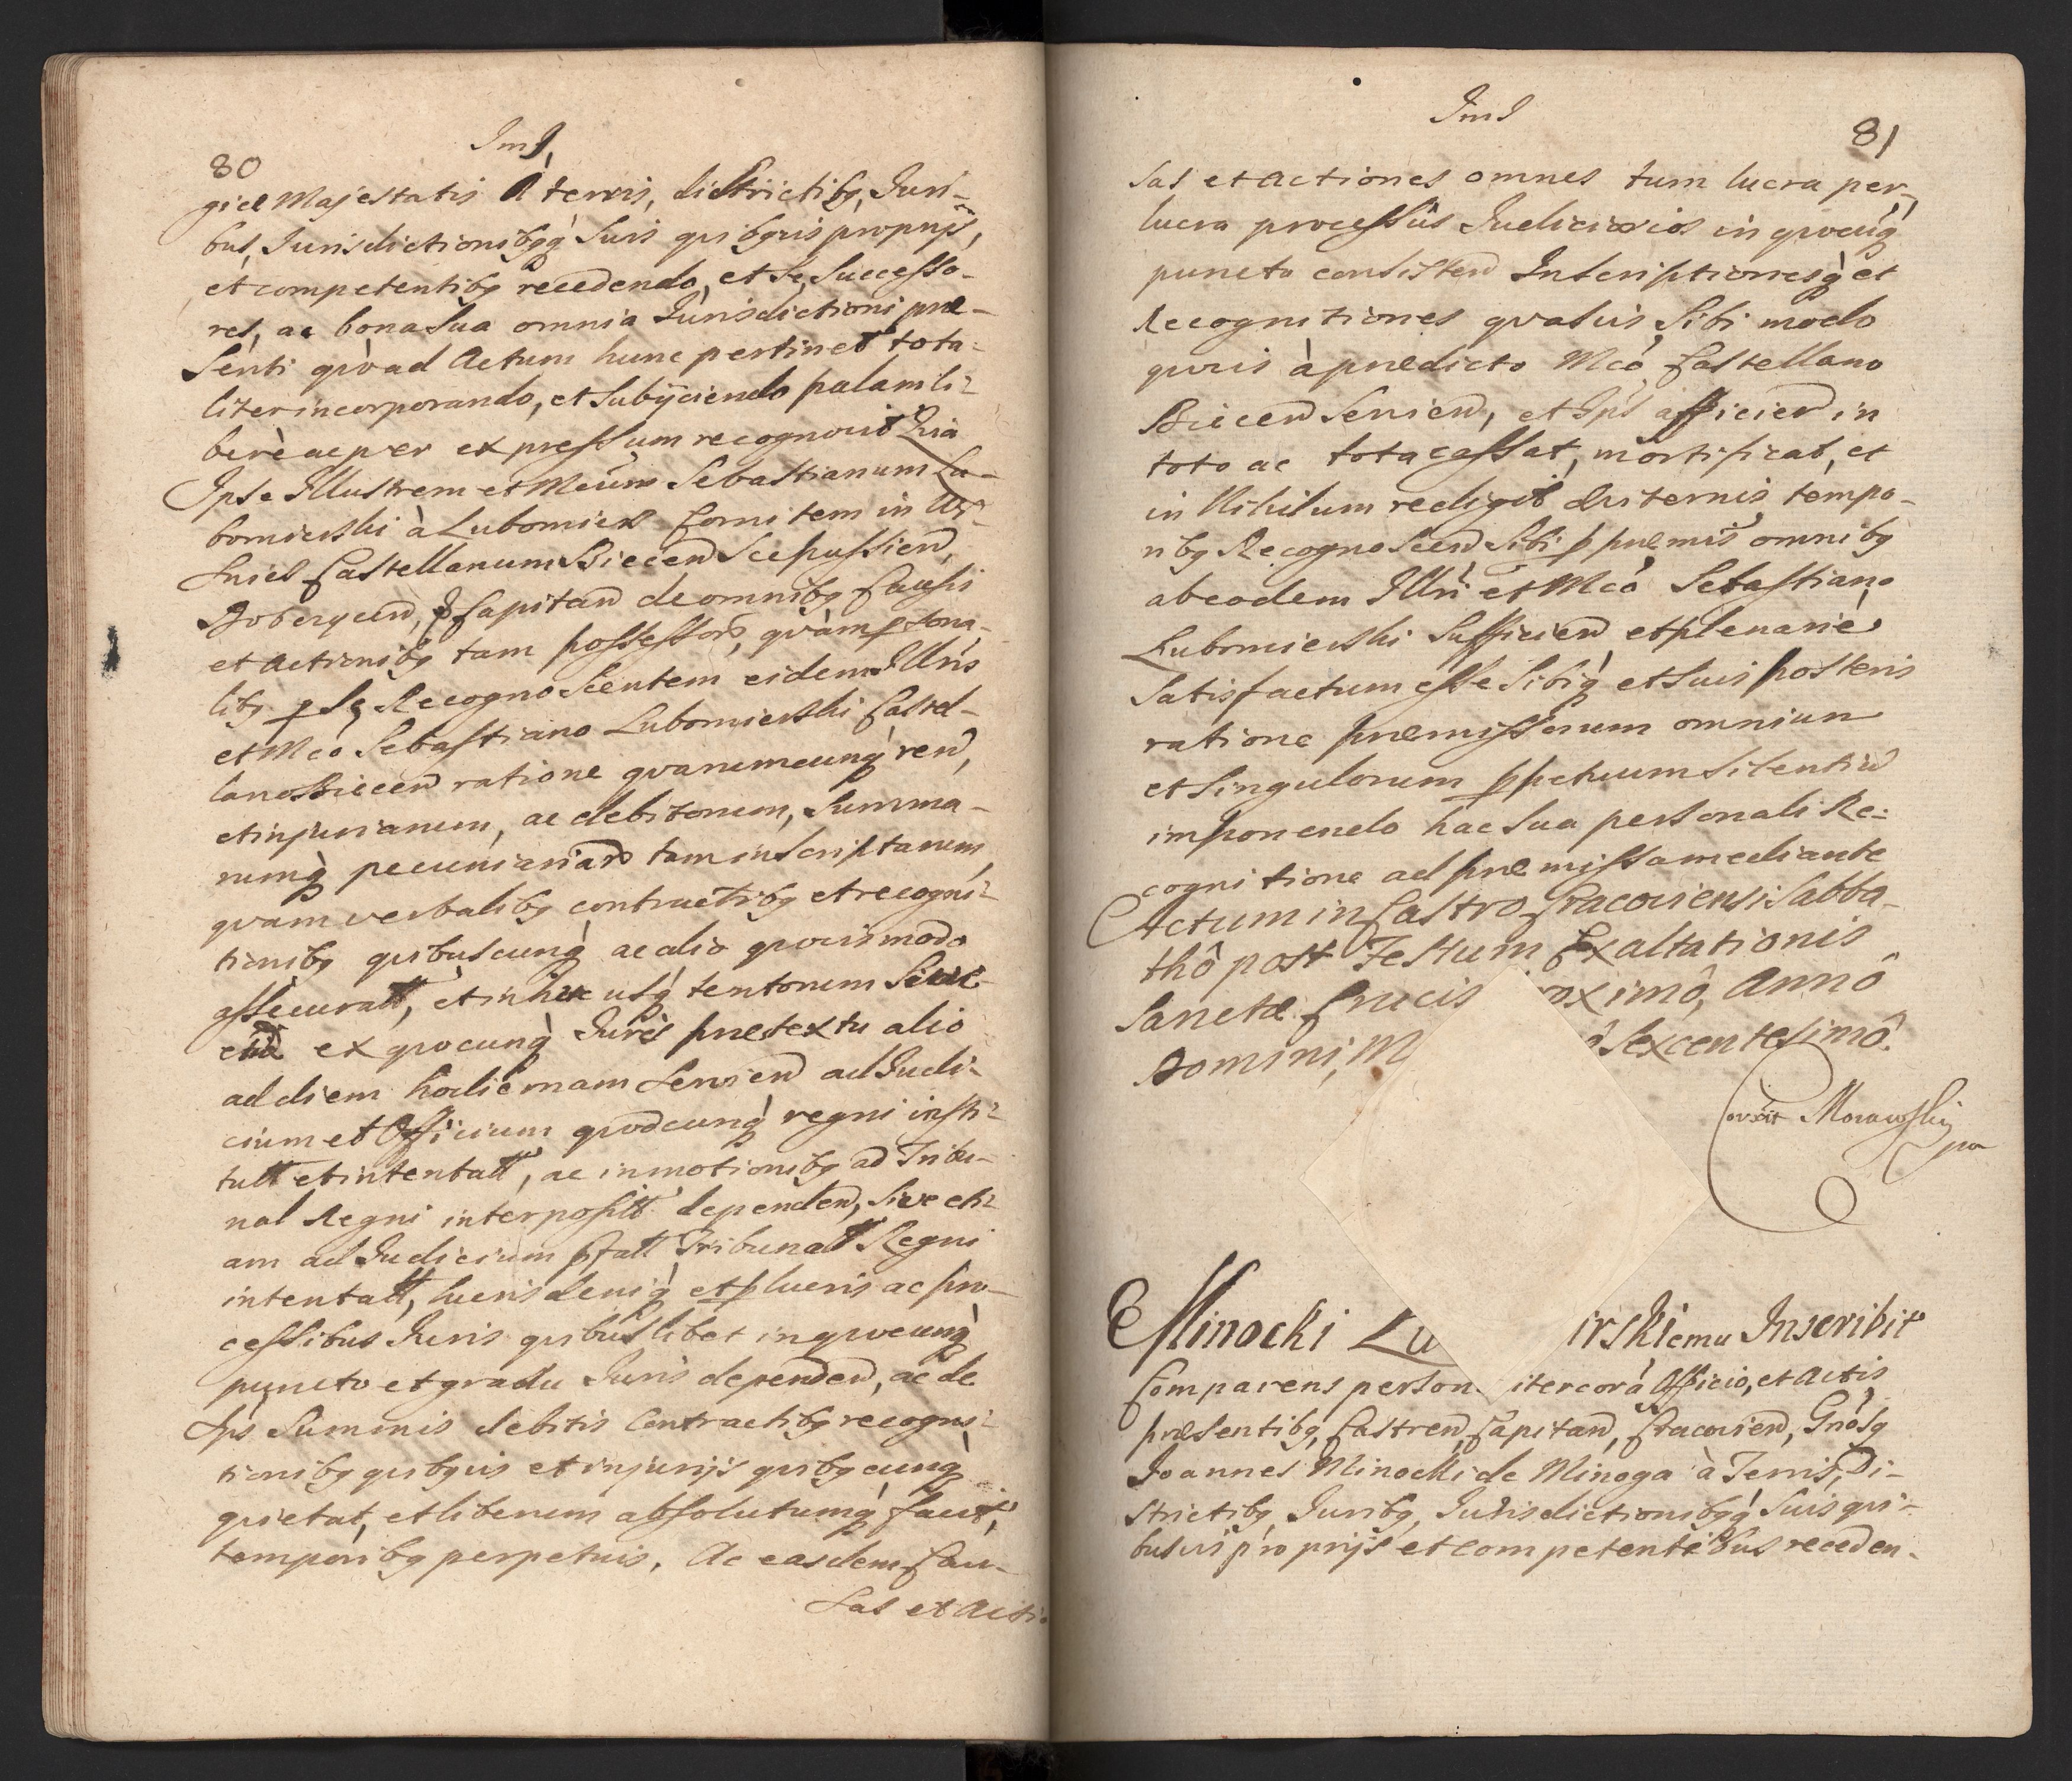 80
ImJ,
giæ Majestatis A terris, districtibq, Juri-
bus, Jurisdictionibqq́ Suis quibqvis proprijs,
et competentibq recedendo, et Se, Successo-
res, ac bona sua omnia Jurisdictioni præ-
senti qvòad Actum hunc pertinet tota-
liter incorporando, et Subijciendo palam li-
berè ac per expressum recognovit Quia
Ipse Illustrem et Mcum Sebastianum Lu-
bomierski à Lubomierz Comitem in
Castellanum Biecen Scepussien,
Dobcycen, Capitan de omnibq Causis
et Actionibq tam possessor, qvàm
libq p Se Recognoscentem eidem Illris
et Mco Sebastiano Lubomierski Castel-
lano Biecen ratione qvarumcunq́ ren,
et injuriarum, ac debitorum, Summa-
rumq́ pecuniariar tam inscriptarum,
qvam verbalibq contractibq et recogni-
tionibq qvibuscunq́ ac alio qvovis modo
assecuratt, et in hunc usq́ tentorum
ex qvocunq́ Juris prætextu alio
ad diem hodiernam Servien ad Judi-
cium et Officium qvodcunq́ regni insti-
tutt et intentatt, ac in motionibq ad Tribu-
nal Regni interpositt dependen, Sive eti-
am ad Judicium pfatt Tribunalt Regni
intentatt, lucris deniq́ et p lucris ac pro-
cessibus Juris qvibuslibet in qvocunq́
puncto et gradu Juris dependen, ac de
Ips Summis debitis Contractibq recogni-
tionibq qvibqvis et injurijs qvibqcunq́
qvietat, et liberum absolutumq́ facit,
temporibq perpetuis. Ac easdem Cau-
sas et Actio
ImJ
81
sas et Actiones omnes tum lucra per-
lucra processûs Judiciarios in qvocuq́
puncto consisten Inscriptionesq́ et
Recognitiones qvasvis Sibi modo
qvovis à prædicto Mco Castellano
Biecen Servien, et Ips afficien in
toto ac tota cassat, mortificat, et
in Nihilum redigit æviternis tempo-
ribq Recognoscen Sibi p præmis omnibq
ab eodem Illri et Mco Sebastiano
Lubomierski Sufficien et plenarie
Satisfactum esse Sibiq́ et Suis posteris
ratione præmissorum omnium
et Singulorum ppetuum Silentiu
imponendo hac Sua personali Re-
cognitione ad præmissa mediante
Actum in Castro Cracoviensi Sabba-
thô post Festum Exaltationis
Sanctæ Crucis oximô, Annô
Domini, M ô Sexcentesimô.
Morawski
Minocki Lu irskiemu Inscribit
Comparens person iter corà Officio, et Actis
præsentibq, Castren, Capitan, Cracovien, Gnosq
Joannes Minocki de Minoga à Terris, Di-
strictibq, Juribq, Jurisdictionibqq́ Suis qvi-
busvis proprijs et competentibus receden-